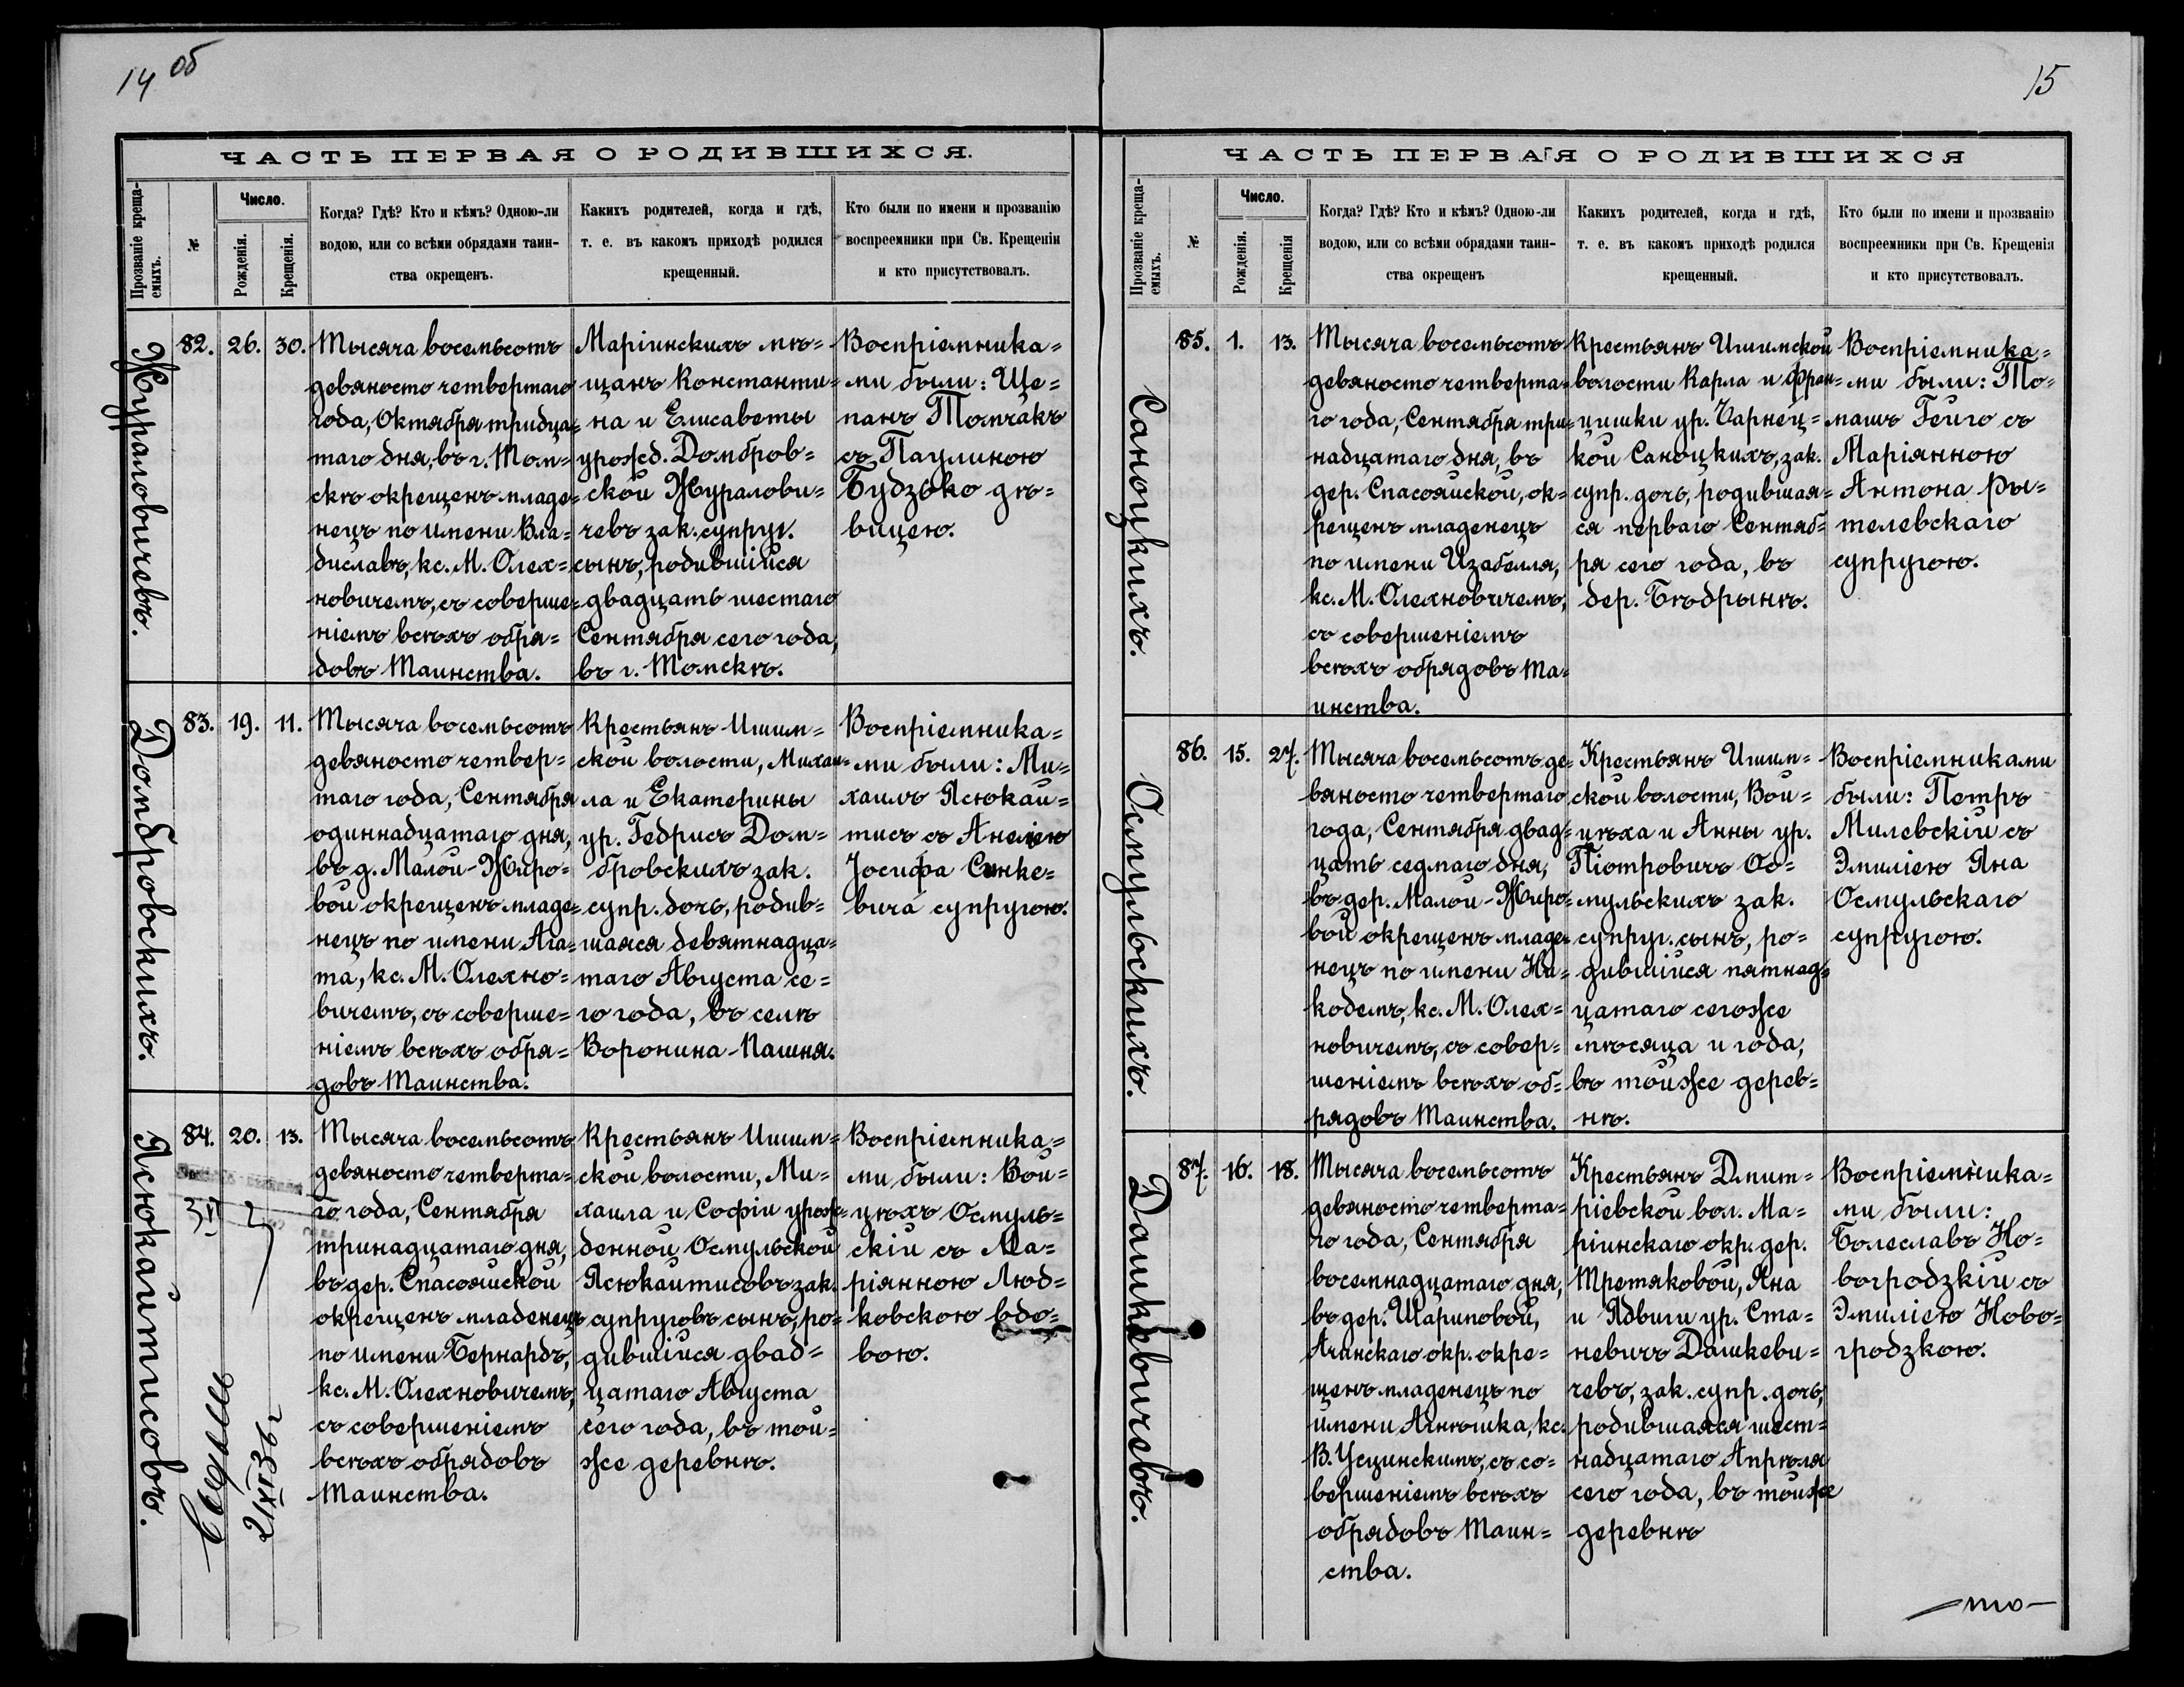 14 об
ЧАСТЬ ПЕРВАЯ О РОДИВШИХСЯ.
Прозваніе креща-
емыхъ.
№
Число.
Рожденія.
Крещенія.
Когда? Гдѣ? Кто и кѣмъ? Одною-ли
водою, или со всѣми обрядами таин-
ства окрещенъ.
Какихъ родителей, когда и гдѣ,
т. е. въ какомъ приходѣ родился
крещенный.
Кто были по имени и прозванію
воспреемники при Св. Крещеніи
и кто присутствовалъ.
Жураловичевъ.
82. 26. 30.
Тысяча восемьсотъ
девяносто четвертаго
года, Октября тридца=
таго дня, въ г. Том=
скѣ окрещенъ младе=
нецъ по имени Вла=
диславъ, кс. М. Олех=
новичемъ, съ соверше=
ніемъ всѣхъ обря=
довъ Таинства.
Маріинскихъ мѣ=
щанъ Константи=
на и Елисаветы
урожд. Домбров=
ской Журалови=
чевъ зак. супруг.
сынъ, родившійся
двадцать шестаго
Сентября сего года,
въ г. Томскѣ.
Воспріемника=
ми были: Ще=
панъ Томчакъ
съ Паулиною
Будзько дѣ=
вицею.
Домбровскихъ.
83. 19. 11.
Тысяча восемьсотъ
девяносто четвер=
таго года, Сентября
одиннадцатаго дня,
въ д. Малой-Жиро=
вой окрещенъ младе=
нецъ по имени Ага=
та, кс. М. Олехно=
вичемъ, съ соверше=
ніемъ всѣхъ обря=
довъ Таинства.
Крестьянъ Ишим=
ской волости, Михаи=
ла и Екатерины
ур. Гедрисъ Дом=
бровскихъ зак.
супр. дочь, родив=
шаяся девятнадца=
таго Августа се=
го года, въ селѣ
Воронина-Пашня.
Воспріемника=
ми были: Ми=
хаилъ Ясюкай=
тисъ съ Анелею
Іосифа Синке=
вича супругою.
Ясюкайтисовъ.
84. 20. 13.
Тысяча восемьсотъ
девяносто четверта=
го года, Сентября
тринадцатаго дня,
въ дер. Спасояйской
окрещенъ младенецъ
по имени Бернардъ,
кс. М. Олехновичемъ,
съ совершеніемъ
всѣхъ обрядовъ
Таинства.
Крестьянъ Ишим=
ской волости, Ми=
хаила и Софіи урож=
денной Осмульской
Ясюкайтисовъ зак.
супруговъ сынъ, ро=
дившійся двад=
цатаго Августа
сего года, въ той=
же деревнѣ.
Воспріемника=
ми были: Вой=
цѣхъ Осмуль=
скій съ Ма=
ріянною Люд=
ковскою вдо=
вою.
2/XI 36 г
15
ЧАСТЬ ПЕРВАЯ О РОДИВШИХСЯ
Прозваніе креща-
емыхъ.
№
Число.
Рожденія.
Крещенія
Когда? Гдѣ? Кто и кѣмъ? Одною-ли
водою, или со всѣми обрядами таин-
ства окрещенъ
Какихъ родителей, когда и гдѣ,
т. е. въ какомъ приходѣ родился
крещенный.
Кто были по имени и прозванію
воспреемники при Св. Крещенія
и кто присутствовалъ.
Саноцкихъ.
85. 1. 13.
Тысяча восемьсотъ
девяносто четверта=
го года, Сентября три=
надцатаго дня, въ
дер. Спасояйской, ок=
рещенъ младенецъ
по имени Изабелля,
кс. М. Олехновичемъ,
съ совершеніемъ
всѣхъ обрядовъ Та=
инства.
Крестьянъ Ишимской
волости Карла и Фран=
цишки ур. Чарнец=
кой Саноцкихъ, зак.
супр. дочь, родившая=
ся перваго Сентяб=
ря сего года, въ
дер. Бѣдрынѣ.
Воспріемника=
ми были: То=
машъ Гейго съ
Маріянною
Антона Ры=
телевскаго
супругою.
Осмульскихъ.
86. 15. 27.
Тысяча восемьсотъ де=
вяносто четвертаго
года, Сентября двад=
цать седмаго дня,
въ дер. Малой-Жиро=
вой окрещенъ младе=
нецъ по имени Ни=
кодемъ, кс. М. Олех=
новичемъ, съ совер=
шеніемъ всѣхъ об=
рядовъ Таинства.
Крестьянъ Ишим=
ской волости, Вой=
цѣха и Анны ур.
Піотровичъ Ос=
мульскихъ зак.
супруг. сынъ, ро=
дившійся пятнад=
цатаго сегоже
мѣсяца и года,
въ тойже дерев=
нѣ.
Воспріемниками
были: Петръ
Милевскій съ
Эмиліею Яна
Осмульскаго
супругою.
Дашкевичевъ.
87. 16. 18.
Тысяча восемьсотъ
девяносто четверта=
го года, Сентября
восемнадцатаго дня,
въ дер. Шариповой,
Ачинскаго окр. окре=
щенъ младенецъ по
имени Агнѣшка, кс.
В. Усцинскимъ, съ со=
вершеніемъ всѣхъ
обрядовъ Таин=
ства.
Крестьянъ Дмит=
ріевской вол. Ма=
ріинскаго окр. дер.
Третяковой, Яна
и Ядвиги ур. Ста=
невичъ Дашкеви=
чевъ, зак. супр. дочь,
родившаяся шест=
надцатаго Апрѣля
сего года, въ тойже
деревнѣ
Воспріемника=
ми были:
Болеславъ Но=
вогродзкій съ
Эмиліею Ново=
гродзкою.